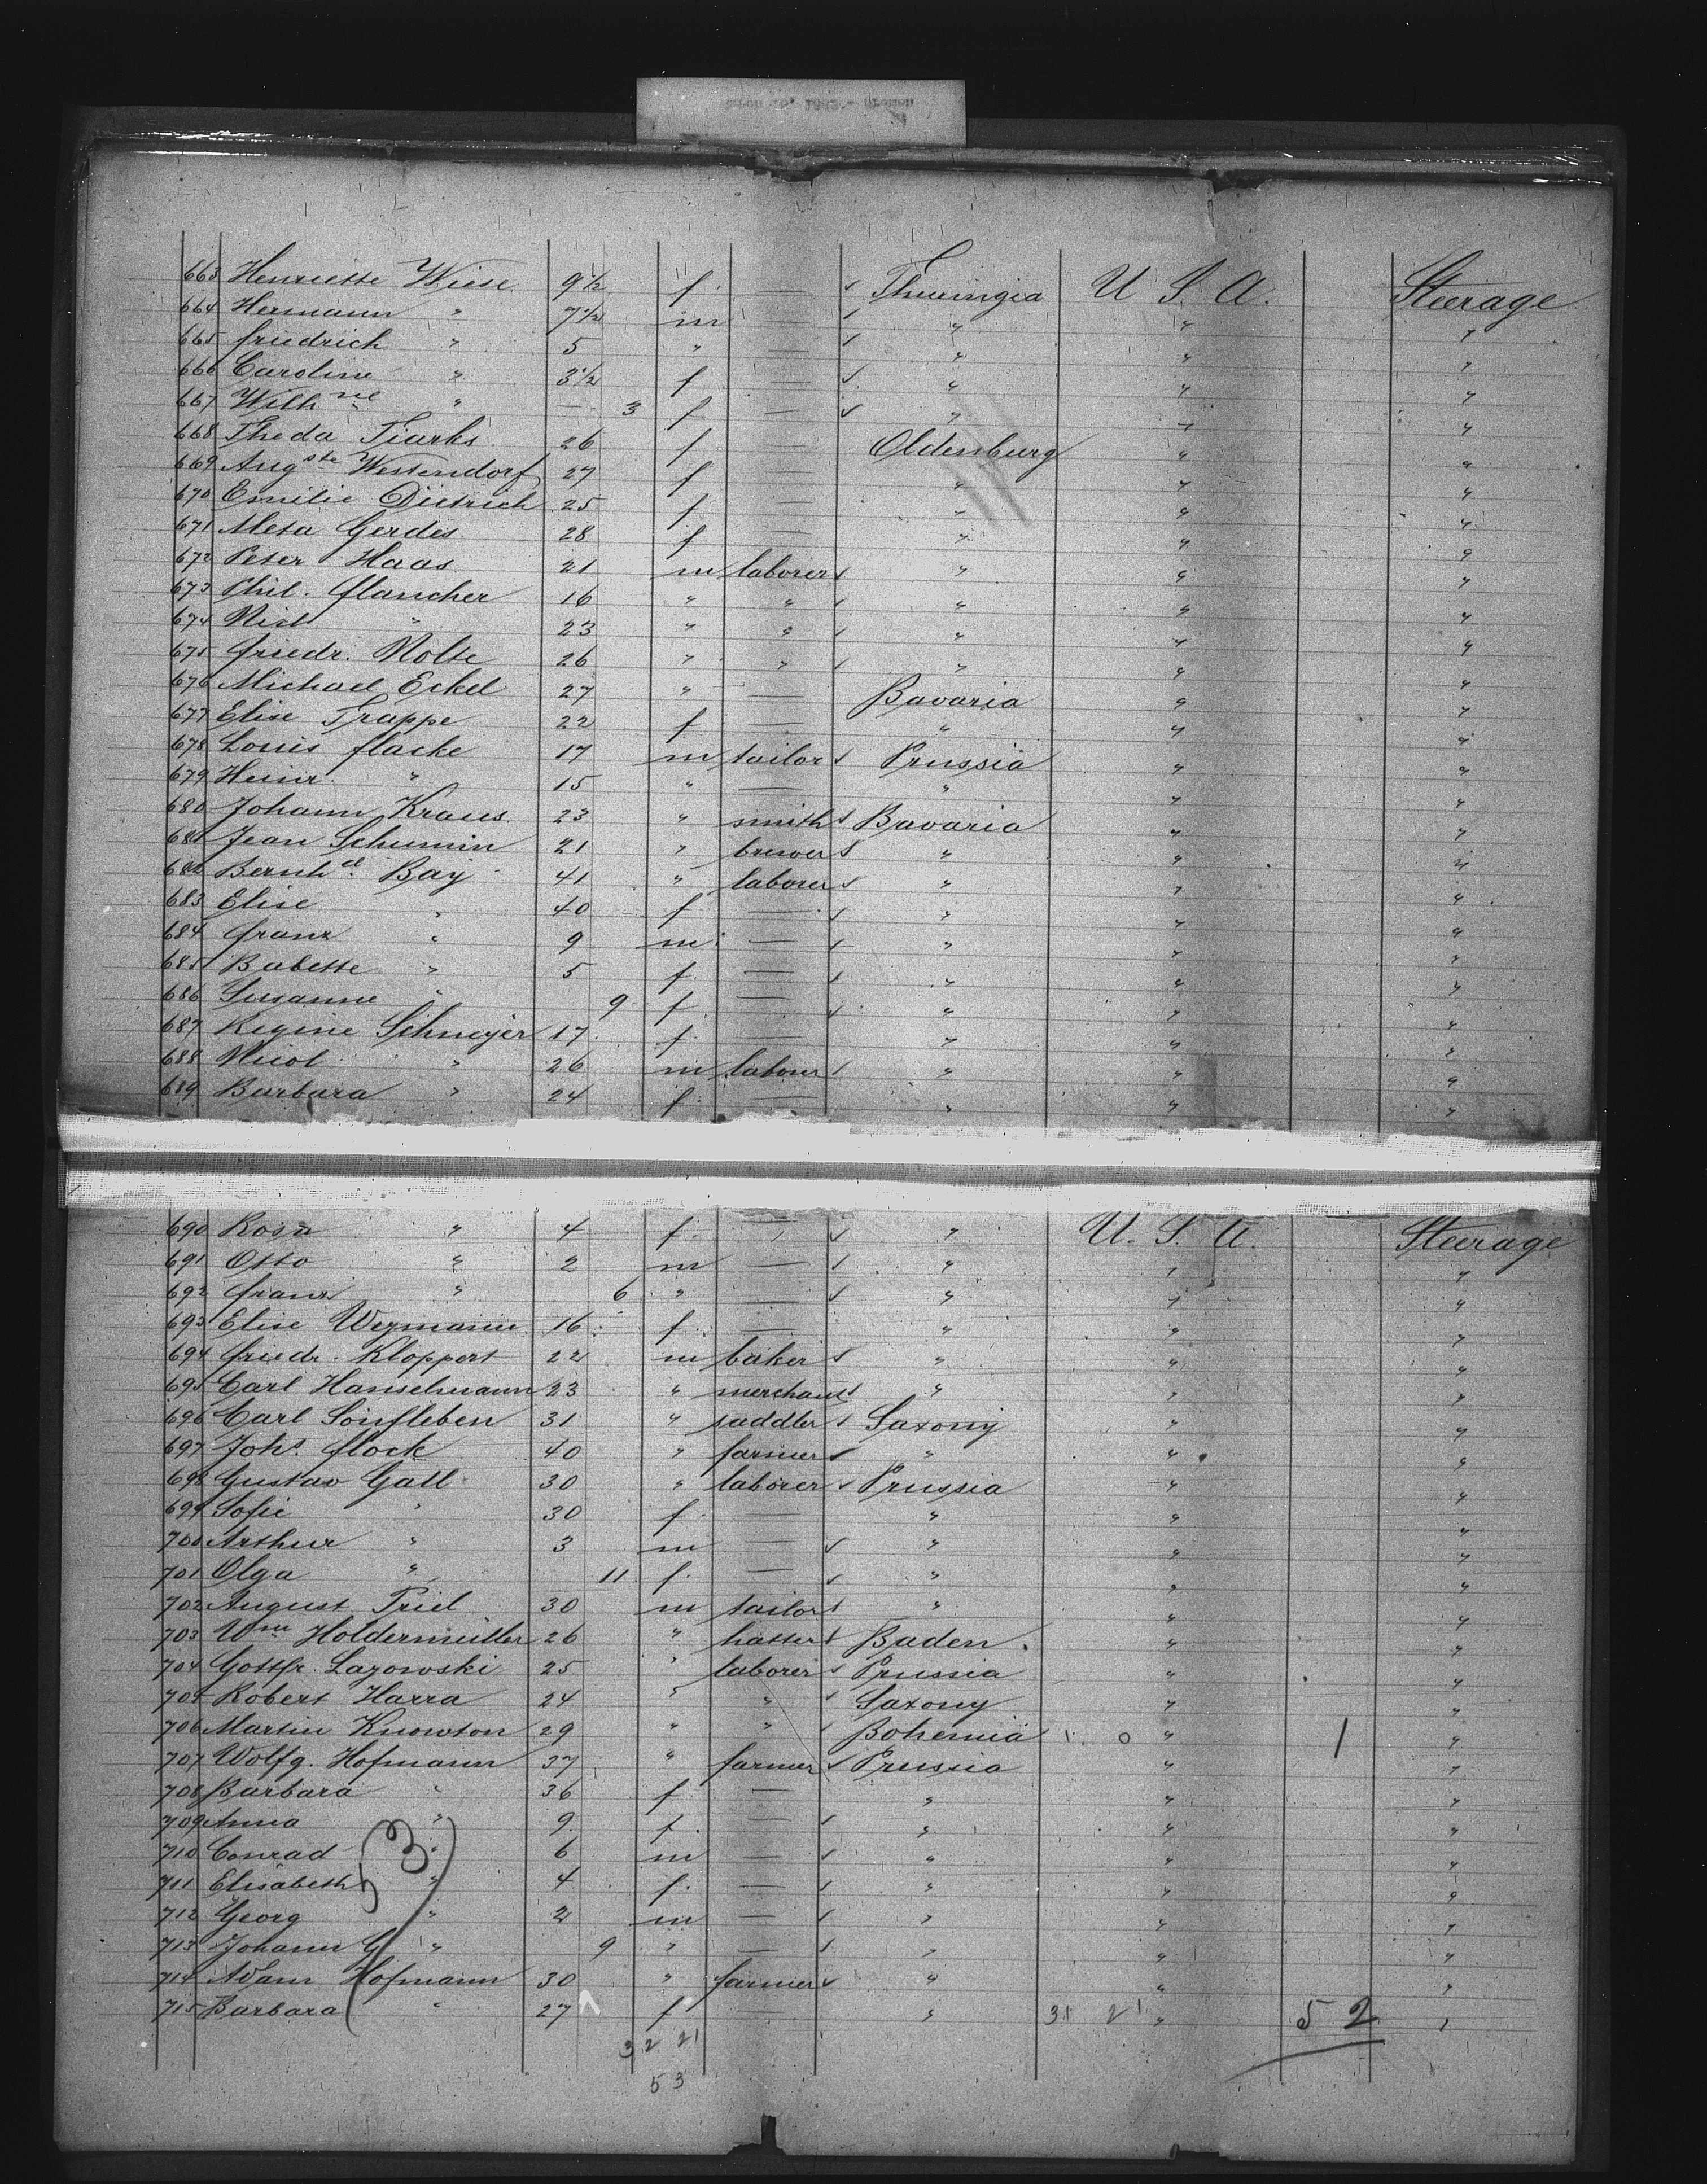 663 Henriette Wiese 9 1/2 f. — Thuringia U. S. A. Steerage
664 Hermann " 7 1/2 m " " "
665 Friedrich " 5 " — " " "
666 Caroline " 3 1/2 f — " " "
667 Wilh ne " — 3 f — " " "
668 Theda Tiarks 26 f — Oldenburg " "
669 Aug ste Westendorf 27 f — " " "
670 Emilie Dietrich 25 f — " " "
671 Meta Gerdes 28 f — " " "
672 Peter Haas 21 m laborer " " "
673 Phil. Flancher 16 " " " " "
674 " 23 " " " " "
675 Friedr. Nolte 26 " " " " "
676 Michael Eckel 27 " — Bavaria " "
677 Elise Trappe 22 f — " " "
678 Louis Flacke 17 m tailor Prussia " "
679 Heinr. " 15 " — " " "
680 Johann Kraus 23 " smith Bavaria " "
681 Jean Schumin 21 " brewer " " "
682 Bernh d. Bay 41 " laborer " " "
683 Elise " 40 f — " " "
684 Franz " 9 m — " " "
685 Babette " 5 f — " " "
686 Susanne " 9 f — " " "
687 Regine Schmeyer 17 f. — " " "
688 Nicol " 26 m laborer " " "
689 Barbara " 24 f — " " "
690 Rosa " 4 f. — " U. S. A. Steerage
691 Otto " 2 m — " " "
692 Franz " 6 " — " " "
693 Elise Wegmann 16 f — " " "
694 Friedr. Kloppert 22 m baker " " "
695 Carl Hanselmann 23 " merchant " " "
696 Carl Senfleben 31 " saddler Saxony " "
697 Johs. Flock 40 " farmer " " "
698 Gustav Gall 30 " laborer Prussia " "
699 Sofie " 30 f — " " "
700 Arthur " 3 m — " " "
701 Olga " 11 f. — " " "
702 August Priel 30 m tailor " " "
703 Wm Holdermüller 26 " hatter Baden " "
704 Gottfr. Lazowski 25 " laborer Prussia " "
705 Robert Harra 24 " " Saxony " "
706 Martin Knowton 29 " " Bohemia 1 0 " 1 "
707 Wolfg. Hofmann 37 " farmer Prussia " "
708 Barbara " 36 f — " " "
709 Anna " 9 f. — " " "
710 Conrad " 6 m — " " "
711 Elisabeth " 4 f. — " " "
712 Georg " 2 m — " " "
713 Johann G " 9 " — " " "
714 Adam Hofmann 30 " farmer " " "
715 Barbara " 27 f — " 31 21 " 52 "
(3)
32 21
53